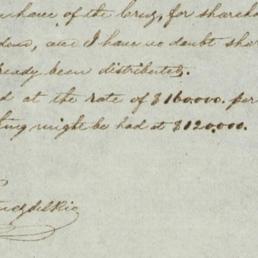 chance of the Cruz, for shareho
dous, and I have no doubt sha
ready been distributed.
d at the rate of $160.000. per
ting might be had at $120.000.